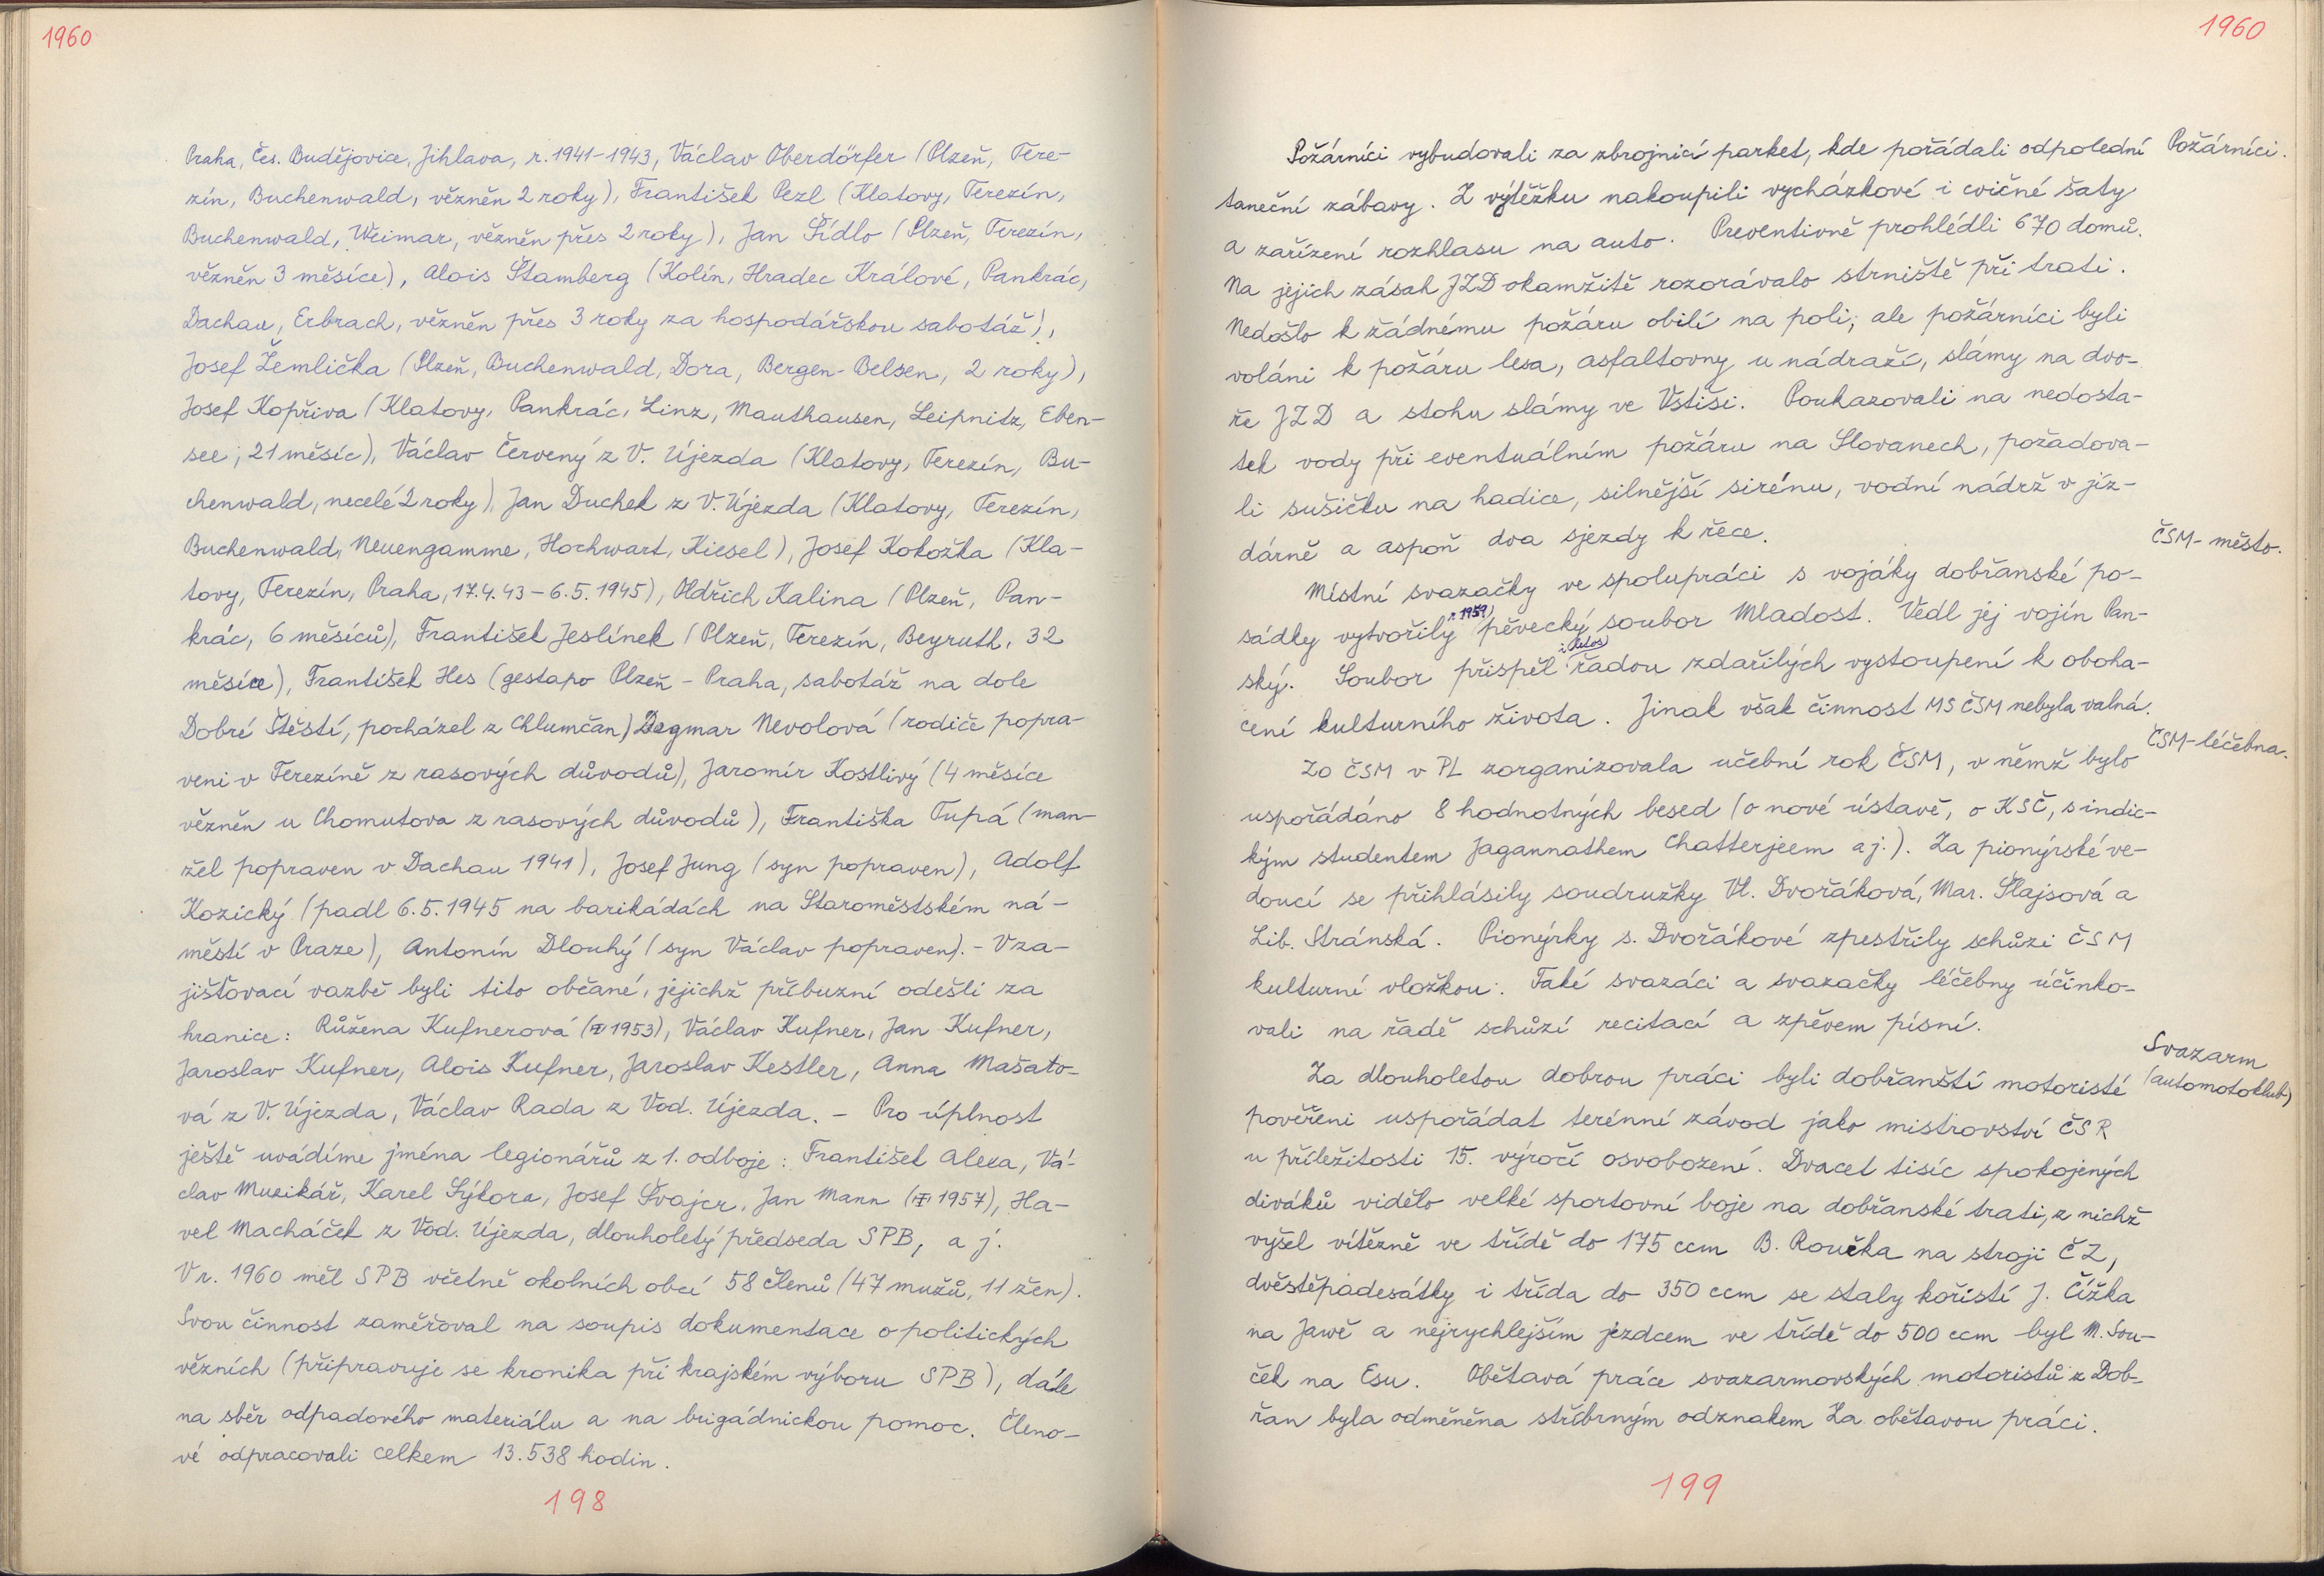 1960
Praha, Čes. Budějovice, Jihlava, r. 1941-1943, Václav Oberdörfer (Plzeň, Tere-
zín, Buchenwald, vězněn 2 roky), František Pezl (Klatovy, Terezín,
Buchenwald, Weimar, vězněn přes 2 roky), Jan Šídlo (Plzeň, Terezín,
vězněn 3 měsíce), Alois Štamberg (Kolín, Hradec Králové, Pankrác,
Dachau, Erbrach, vězněn přes 3 roky za hospodářskou sabotáž),
Josef Žemlička (Plzeň, Buchenwald, Dora, Bergen-Belsen, 2 roky),
Josef Kopřiva (Klatovy, Pankrác, Linz, Mauthausen, Leipnitz, Eben-
see, 21 měsíc), Václav Červený z V. Újezda (Klatovy, Terezín, Bu-
chenwald, necelé 2 roky), Jan Duchek z V. Újezda (Klatovy, Terezín,
Buchenwald, Neuengamme, Hochwart, Kiesel), Josef Kokožka (Kla-
tovy, Terezín, Praha, 17.4.43 – 6.5.1945), Oldřich Kalina (Plzeň, Pan-
krác, 6 měsíců), František Jeslínek (Plzeň, Terezín, Beyruth, 32
měsíce), František Hes (gestapo Plzeň – Praha, sabotáž na dole
Dobré Štěstí, pocházel z Chlumčan) Dagmar Nevolová (rodiče popra-
veni v Terezíně z rasových důvodů), Jaromír Kostlivý (4 měsíce
vězněn u Chomutova z rasových důvodů), Františka Tupá (man-
žel popraven v Dachau 1941), Josef Jung (syn popraven), Adolf
Kozický (padl 6.5.1945 na barikádách na Staroměstském ná-
městí v Praze), Antonín Dlouhý (syn Václav popraven). – V za-
jišťovací vazbě byli tito občané, jejichž příbuzní odešli za
hranice: Růžena Kufnerová (1953), Václav Kufner, Jan Kufner,
Jaroslav Kufner, Alois Kufner, Jaroslav Kestler, Anna Mašato-
vá z V. Újezda, Václav Rada z Vod. Újezda. – Pro úplnost
ještě uvádíme jména legionářů z 1. odboje: František Alexa, Vá-
clav Muzikář, Karel Sýkora, Josef Švajcr, Jan Mann (1957), Ha-
vel Macháček z Vod. Újezda, dlouholetý předseda SPB, a j.
V r. 1960 měl SPB včetně okolních obcí 58 členů (47 mužů, 11 žen).
Svou činnost zaměřoval na soupis dokumentace o politických
vězních (připravuje se kronika při krajském výboru SPB), dále
na sběr odpadového materiálu a na brigádnickou pomoc. Členo-
vé odpracovali celkem 13.538 hodin.
198
1960
Požárníci.
Požárníci vybudovali za zbrojnicí parket, kde pořádali odpolední
taneční zábavy. Z výtěžku nakoupili vycházkové i cvičné šaty
a zařízení rozhlasu na auto. Preventivně prohlédli 670 domů.
Na jejich zásah JZD okamžitě rozorávalo strniště při trati.
Nedošlo k žádnému požáru obilí na poli, ale požárníci byli
voláni k požáru lesa, asfaltovny u nádraží, slámy na dvo-
ře JZD a stohu slámy ve Vstiši. Poukazovali na nedosta-
tek vody při eventuálním požáru na Slovanech, požadova-
li sušičku na hadice, silnější sirénu, vodní nádrž v jíz-
dárně a aspoň dva sjezdy k řece.
ČSM - město.
Místní svazačky ve spolupráci s vojáky dobřanské po-
r. 1959
sádky vytvořily pěvecký soubor Mladost. Vedl jej vojín Pan-
i letos
ský. Soubor přispěl řadou zdařilých vystoupení k oboha-
cení kulturního života. Jinak však činnost MS ČSM nebyla valná.
ČSM - léčebna.
ZO ČSM v PL zorganizovala učební rok ČSM, v němž bylo
uspořádáno 8 hodnotných besed (o nové ústavě, o KSČ, s indic-
kým studentem Jagannathem Chatterjeem a j.). Za pionýrské ve-
doucí se přihlásily soudružky Vl. Dvořáková, Mar. Šlajsová a
Lib. Stránská. Pionýrky s. Dvořákové zpestřily schůzi ČSM
kulturní vložkou. Také svazáci a svazačky léčebny účinko-
vali na řadě schůzí recitací a zpěvem písní.
Svazarm
(automotoklub)
Za dlouholetou dobrou práci byli dobřanští motoristé
pověřeni uspořádat terénní závod jako mistrovství ČSR
u příležitosti 15. výročí osvobození. Dvacet tisíc spokojených
diváků vidělo velké sportovní boje na dobřanské trati, z nichž
vyšel vítězně ve třídě do 175 ccm B. Roučka na stroji ČZ,
dvěstěpadesátky i třída do 350 ccm se staly kořistí J. Čížka
na Jawě a nejrychlejším jezdcem ve třídě do 500 ccm byl M. Sou-
ček na Esu. Obětavá práce svazarmovských motoristů z Dob-
řan byla odměněna stříbrným odznakem Za obětavou práci.
199